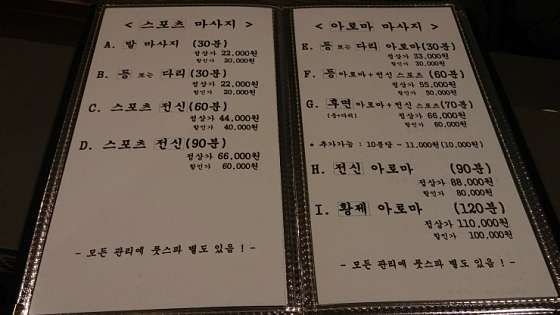 < 스포츠 마사지 >
A. 발 마사지 (30분)
정상가 22,000원
할인가 20,000원
B. 등 또는 다리 (30분)
정상가 22,000원
할인가 20,000원
C. 스포츠 전신 (60분)
정상가 44,000원
할인가 40,000원
D. 스포츠 전신 (90분)
정상가 66,000원
할인가 60,000원
- 모든 관리에 풋스파 별도 있음 ! -
< 아로마 마사지 >
E. 등 또는 다리 아로마 (30분)
정상가 33,000원
할인가 30,000원
F. 등 아로마 + 전신 스포츠 (60분)
정상가 55,000원
할인가 50,000원
G. 후면 아로마 + 전신 스포츠 (70분)
(등+다리) 정상가 66,000원
할인가 60,000원
* 추가가능 : 10분당 - 11,000원(10,000원)
H. 전신 아로마 (90분)
정상가 88,000원
할인가 80,000원
I. 황제 아로마 (120분)
정상가 110,000원
할인가 100,000원
- 모든 관리에 풋스파 별도 있음 ! -